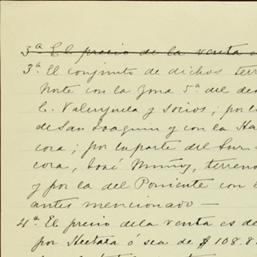 3ª El precio de la venta e
3ª. El conjunto de dichos terr
Norte con la Zona 5ª del de
C. Valenzuela y Socios; por l
de San Joaquin y con la Ha
cora; por la parte del Sur
cora, José Muñoz, terreno
y por la del Poniente con e
antes mencionado —
4ª. El precio de la venta es de
por Hectara ó sea de $ 108.8